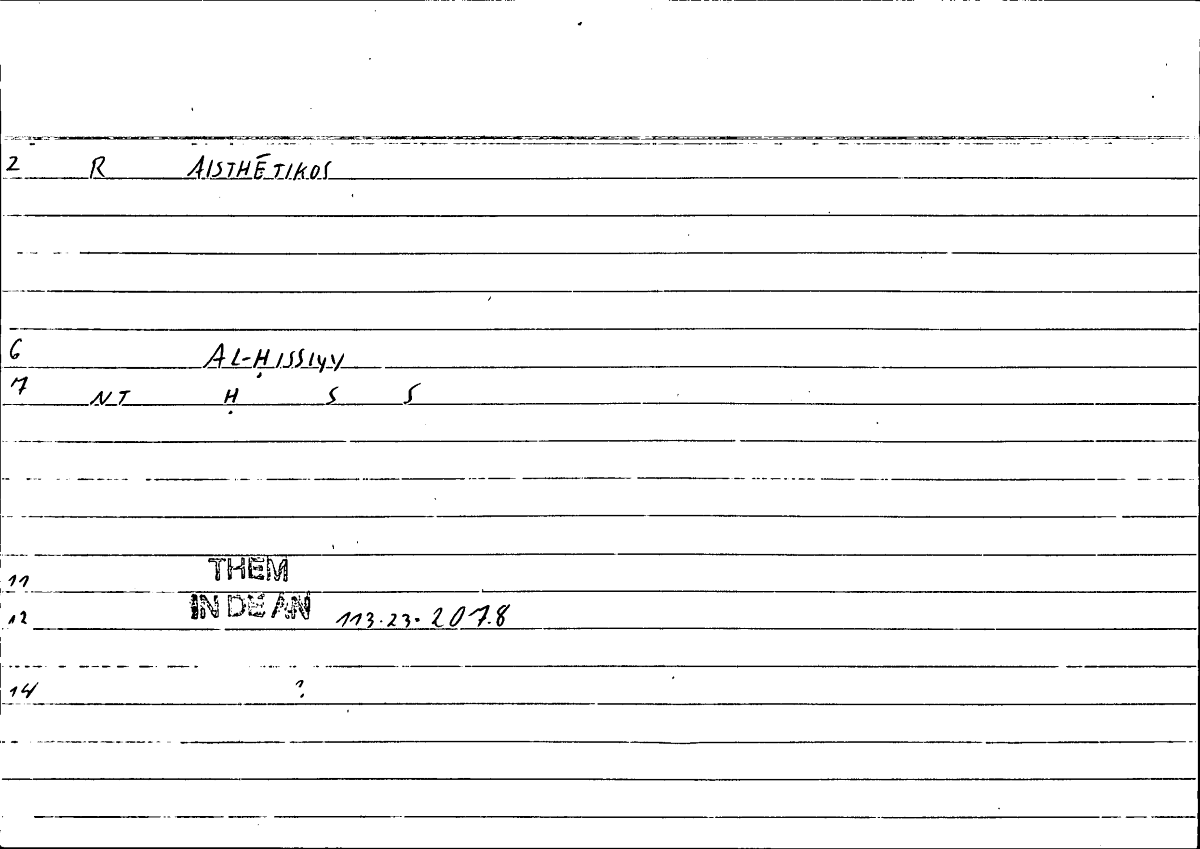 2 R AISTHĒTIKOS
6 AL-ḤISSIYY
7 NT Ḥ S S
11 THEM
12 IN DE AN 113.23.2078
14 ?